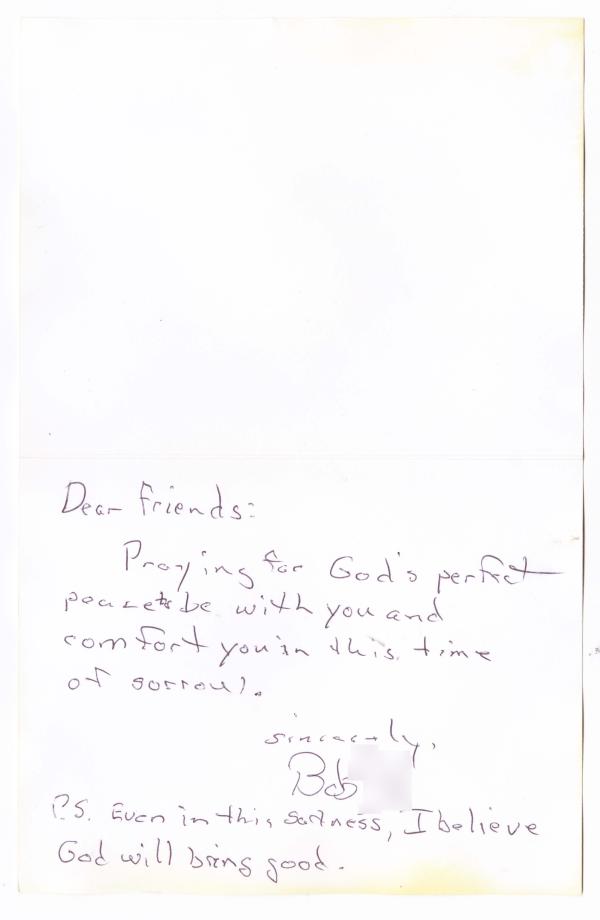 Dear friends:
Praying for God's perfect
peace to be with you and
comfort you in this time
of sorrow.
sincerely,
Bob
P.S. Even in this sadness, I believe
God will bring good.